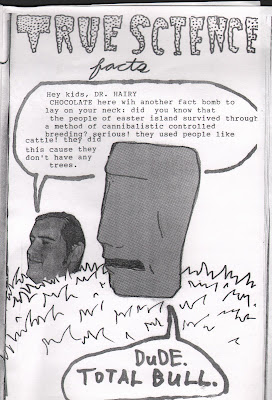 TRUE SCIENCE
facts
Hey kids, DR. HAIRY
CHOCOLATE here wih another fact bomb to
lay on your neck: did you know that
the people of easter island survived through
a method of cannibalistic controlled
breeding? serious! they used people like
cattle! they did
this cause they
don't have any
trees.
DUDE.
TOTAL BULL.